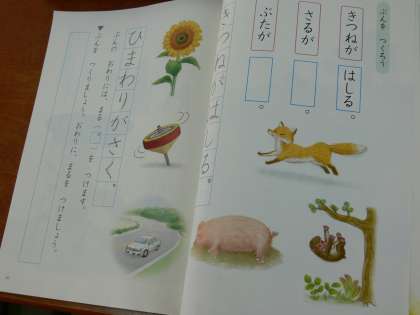 ぶんを つくろう
きつねが はしる。
さるが 。
ぶたが 。
きつねがはしる。
ひまわりがさく。
ぶんの おわりには、まる 。 を つけます。
▼ぶんを つくりましょう。おわりに、まるを つけましょう。